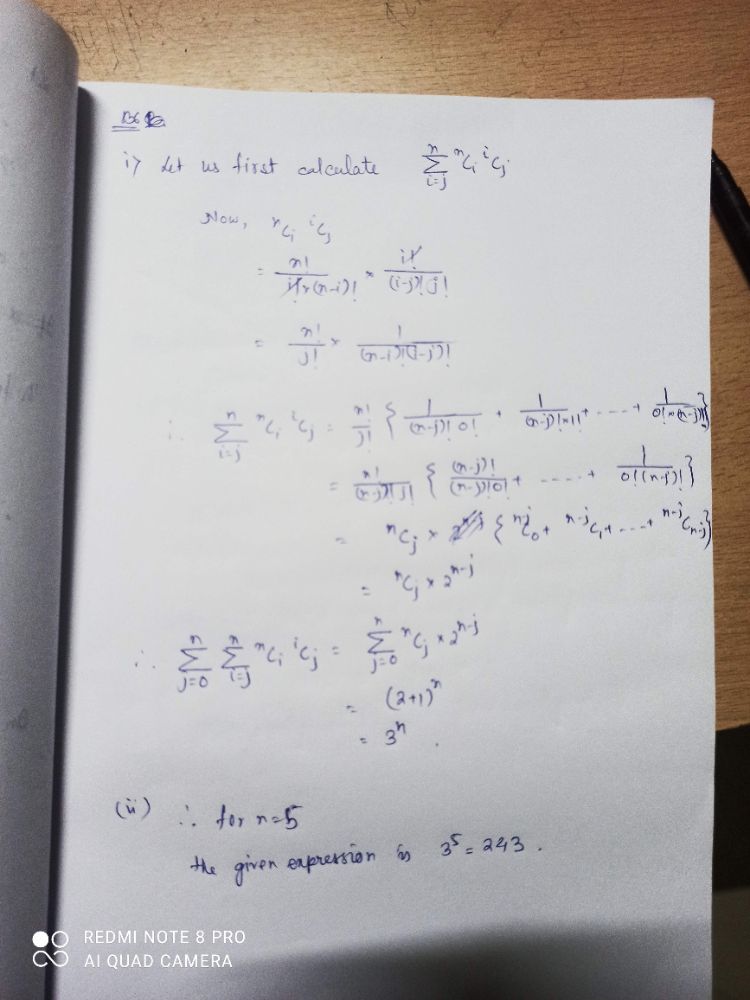 i) Let us first calculate \sum_{i=j}^{n} {}^nC_i {}^iC_j
Now, {}^nC_i {}^iC_j
= \frac{n!}{i! × (n-i)!} × \frac{i!}{(i-j)! j!}
= \frac{n!}{j!} × \frac{1}{(n-i)!(i-j)!}
∴ \sum_{i=j}^{n} {}^nC_i {}^iC_j = \frac{n!}{j!} { \frac{1}{(n-j)! 0!} + \frac{1}{(n-j)! × 1!} + ---- + \frac{1}{0! × (n-j)!} }
= \frac{n!}{(n-j)! j!} { \frac{(n-j)!}{(n-j)! 0!} + ---- + \frac{1}{0! (n-j)!} }
= {}^nC_j × { {}^{n-j}C_0 + {}^{n-j}C_1 + ---- + {}^{n-j}C_{n-j} }
= {}^nC_j × 2^{n-j}
∴ \sum_{j=0}^{n} \sum_{i=j}^{n} {}^nC_i {}^iC_j = \sum_{j=0}^{n} {}^nC_j × 2^{n-j}
= (2+1)^n
= 3^n .
(ii) ∴ for n=5
the given expression is 3^5 = 243 .
REDMI NOTE 8 PRO
AI QUAD CAMERA